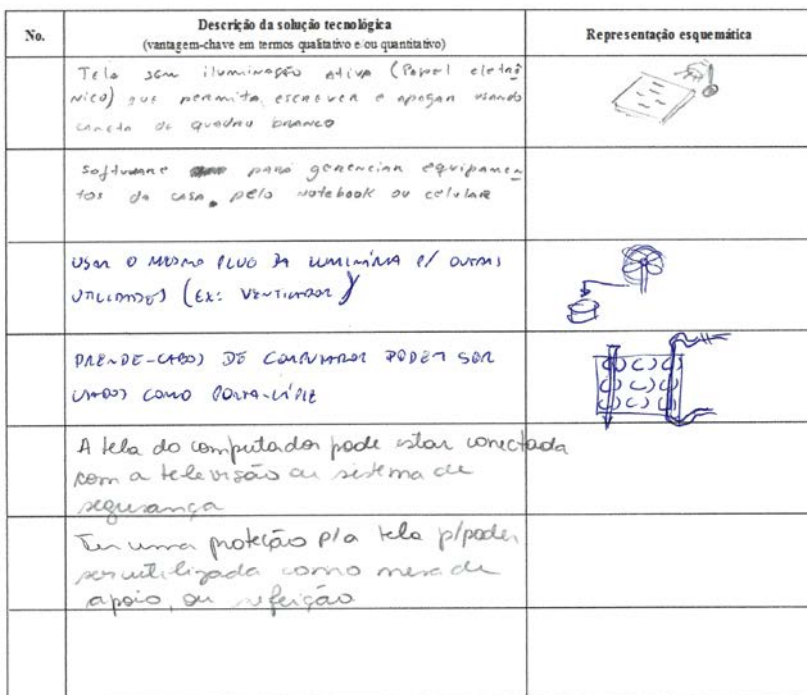 No.
Descrição da solução tecnológica
(vantagem-chave em termos qualitativo e/ou quantitativo)
Representação esquemática
Tela sem iluminação ativa (Papel eletrô
nico) que permita escrever e apagar usando
caneta de quadro branco
Software para gerenciar equipamen
tos da casa, pelo notebook ou celular
USAR O MESMO PLUG DA LUMINÁRIA P/ OUTRAS
UTILIDADES (EX: VENTILADOR)
PRENDE-CABOS DE COMPUTADOR PODEM SER
USADOS COMO PORTA-LÁPIZ
A tela do computador pode estar conectada
com a televisão ou sistema de
segurança
Ter uma proteção p/a tela p/poder
ser utilizada como mesa de
apoio, ou refeição